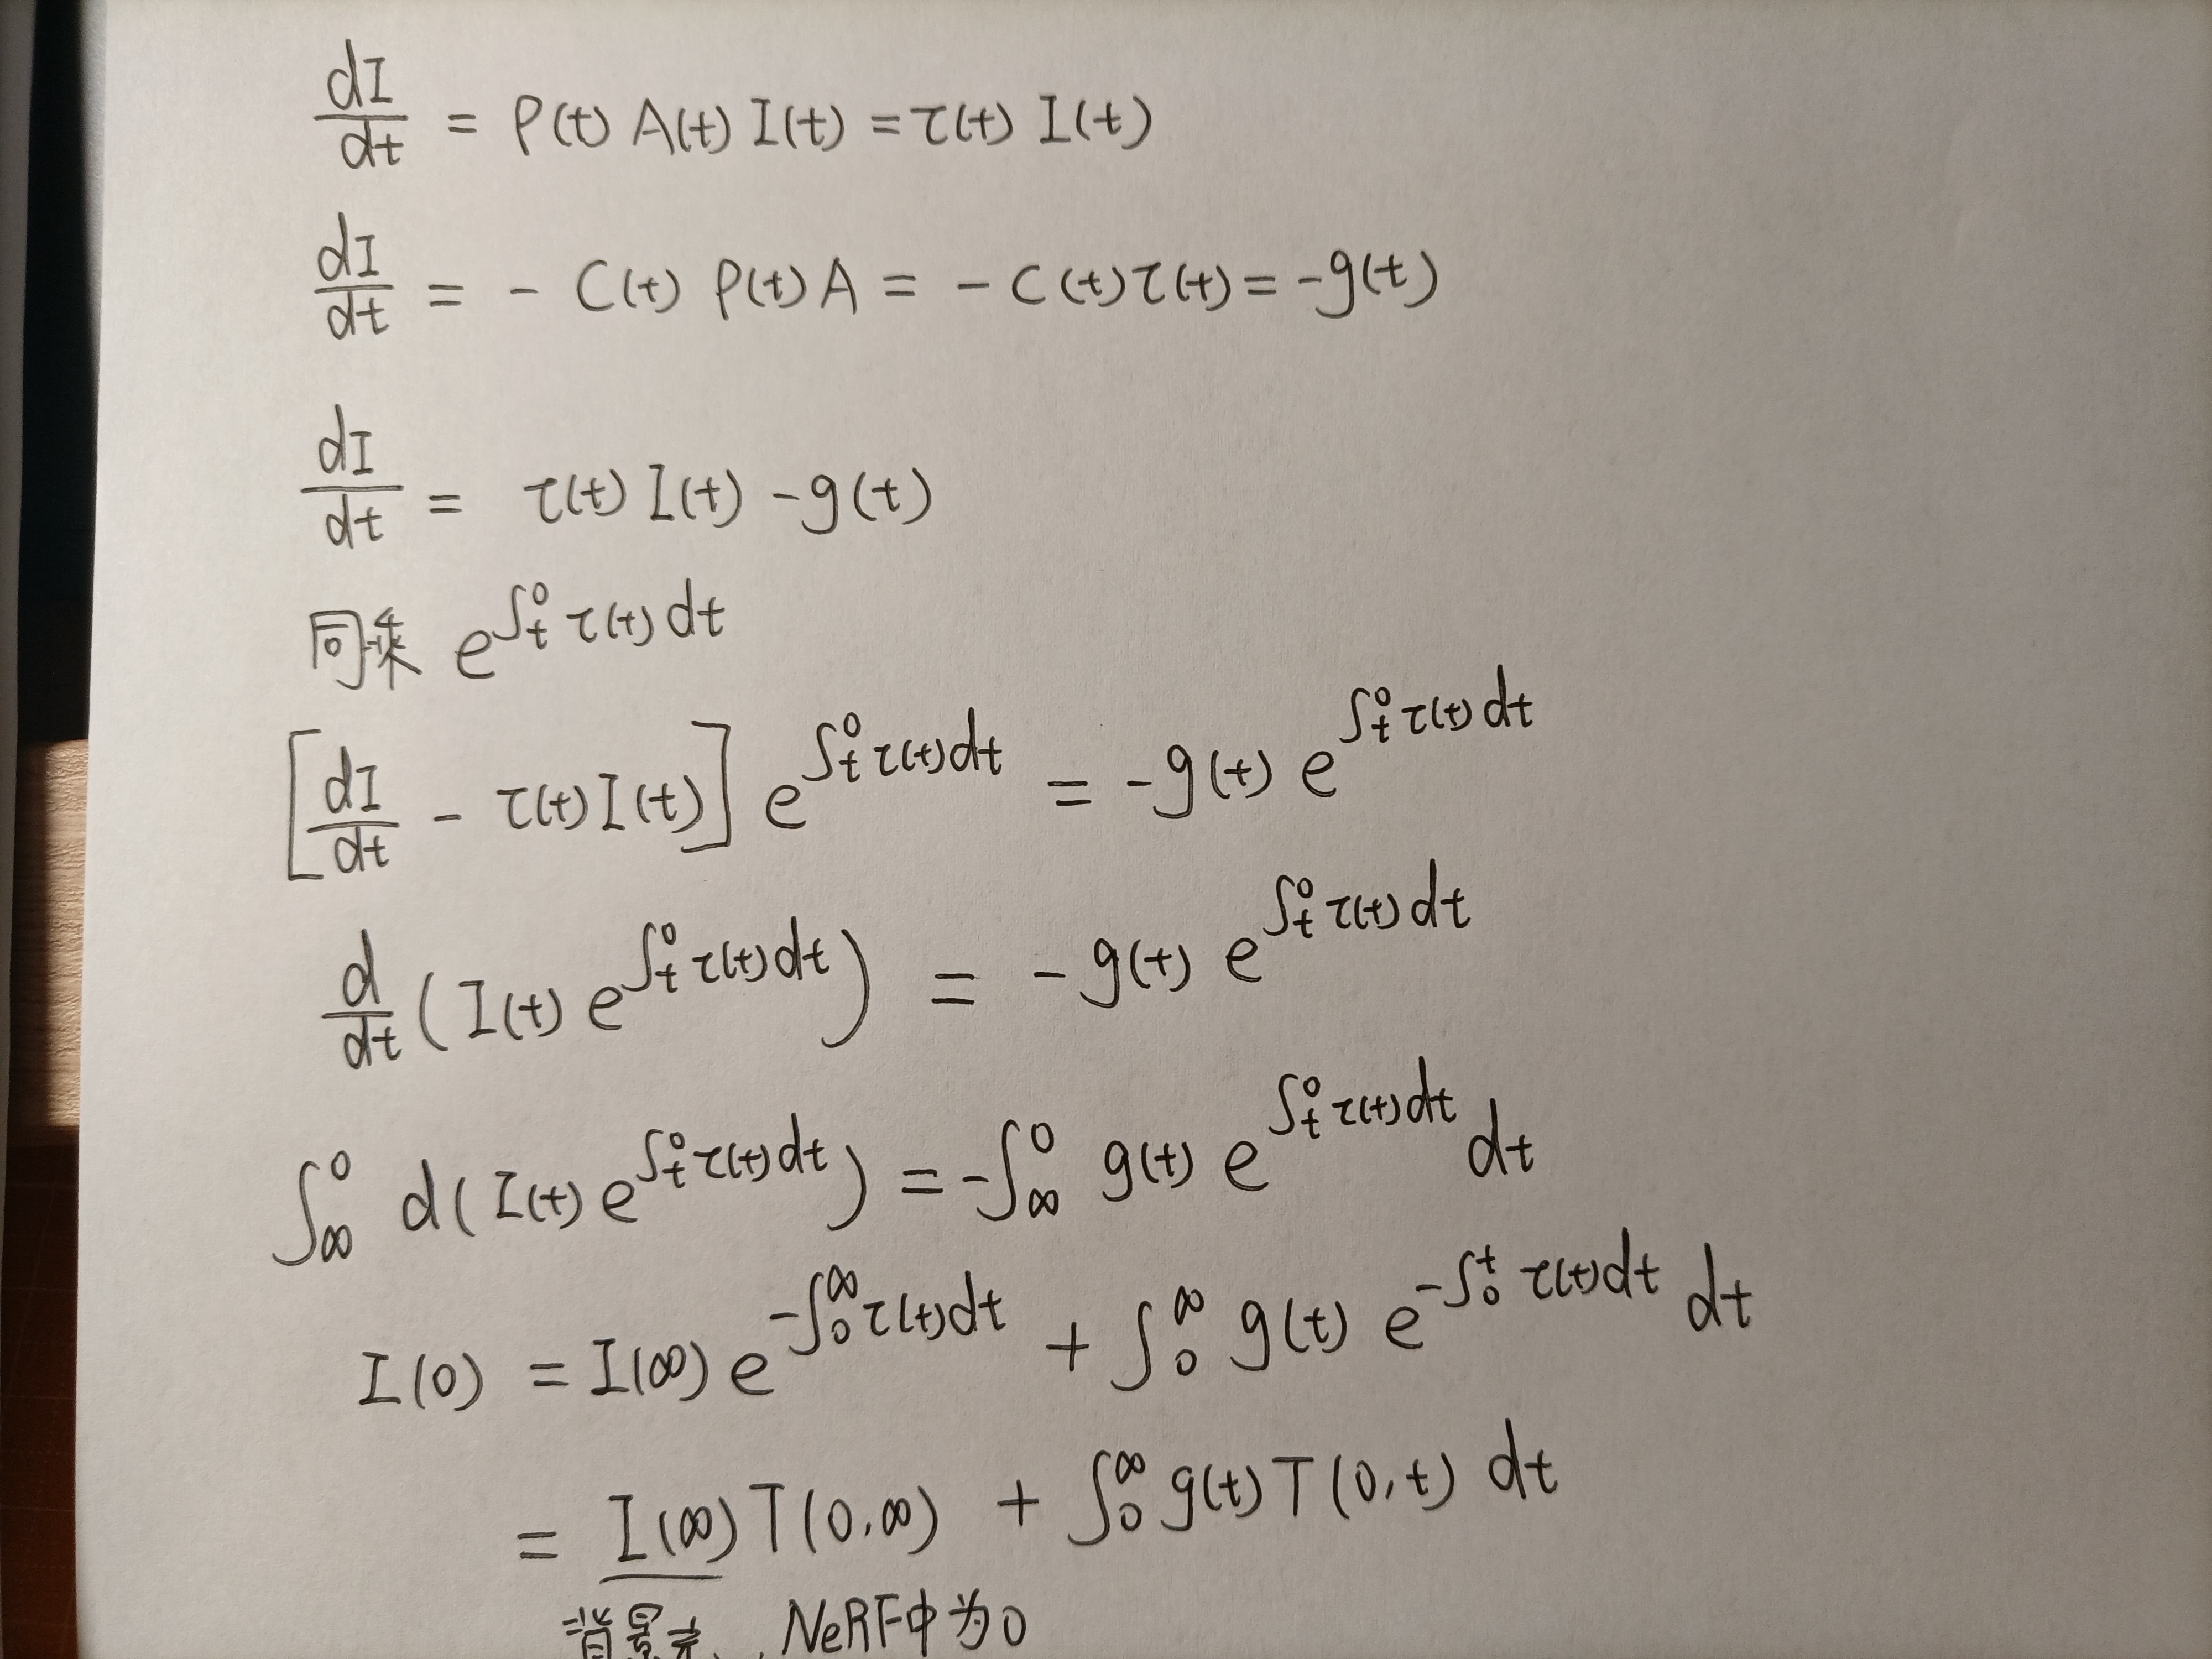 dI/dt = ρ(t) A(t) I(t) = τ(t) I(t)
dI/dt = - C(t) ρ(t) A = - C(t) τ(t) = -g(t)
dI/dt = τ(t) I(t) - g(t)
同乘 e^{∫_t^0 τ(t) dt}
[dI/dt - τ(t) I(t)] e^{∫_t^0 τ(t) dt} = -g(t) e^{∫_t^0 τ(t) dt}
d/dt (I(t) e^{∫_t^0 τ(t) dt}) = - g(t) e^{∫_t^0 τ(t) dt}
∫_∞^0 d(I(t) e^{∫_t^0 τ(t) dt}) = -∫_∞^0 g(t) e^{∫_t^0 τ(t) dt} dt
I(0) = I(∞) e^{-∫_0^∞ τ(t) dt} + ∫_0^∞ g(t) e^{-∫_0^t τ(t) dt} dt
= I(∞) T(0,∞) + ∫_0^∞ g(t) T(0,t) dt
背景光, NeRF中为0